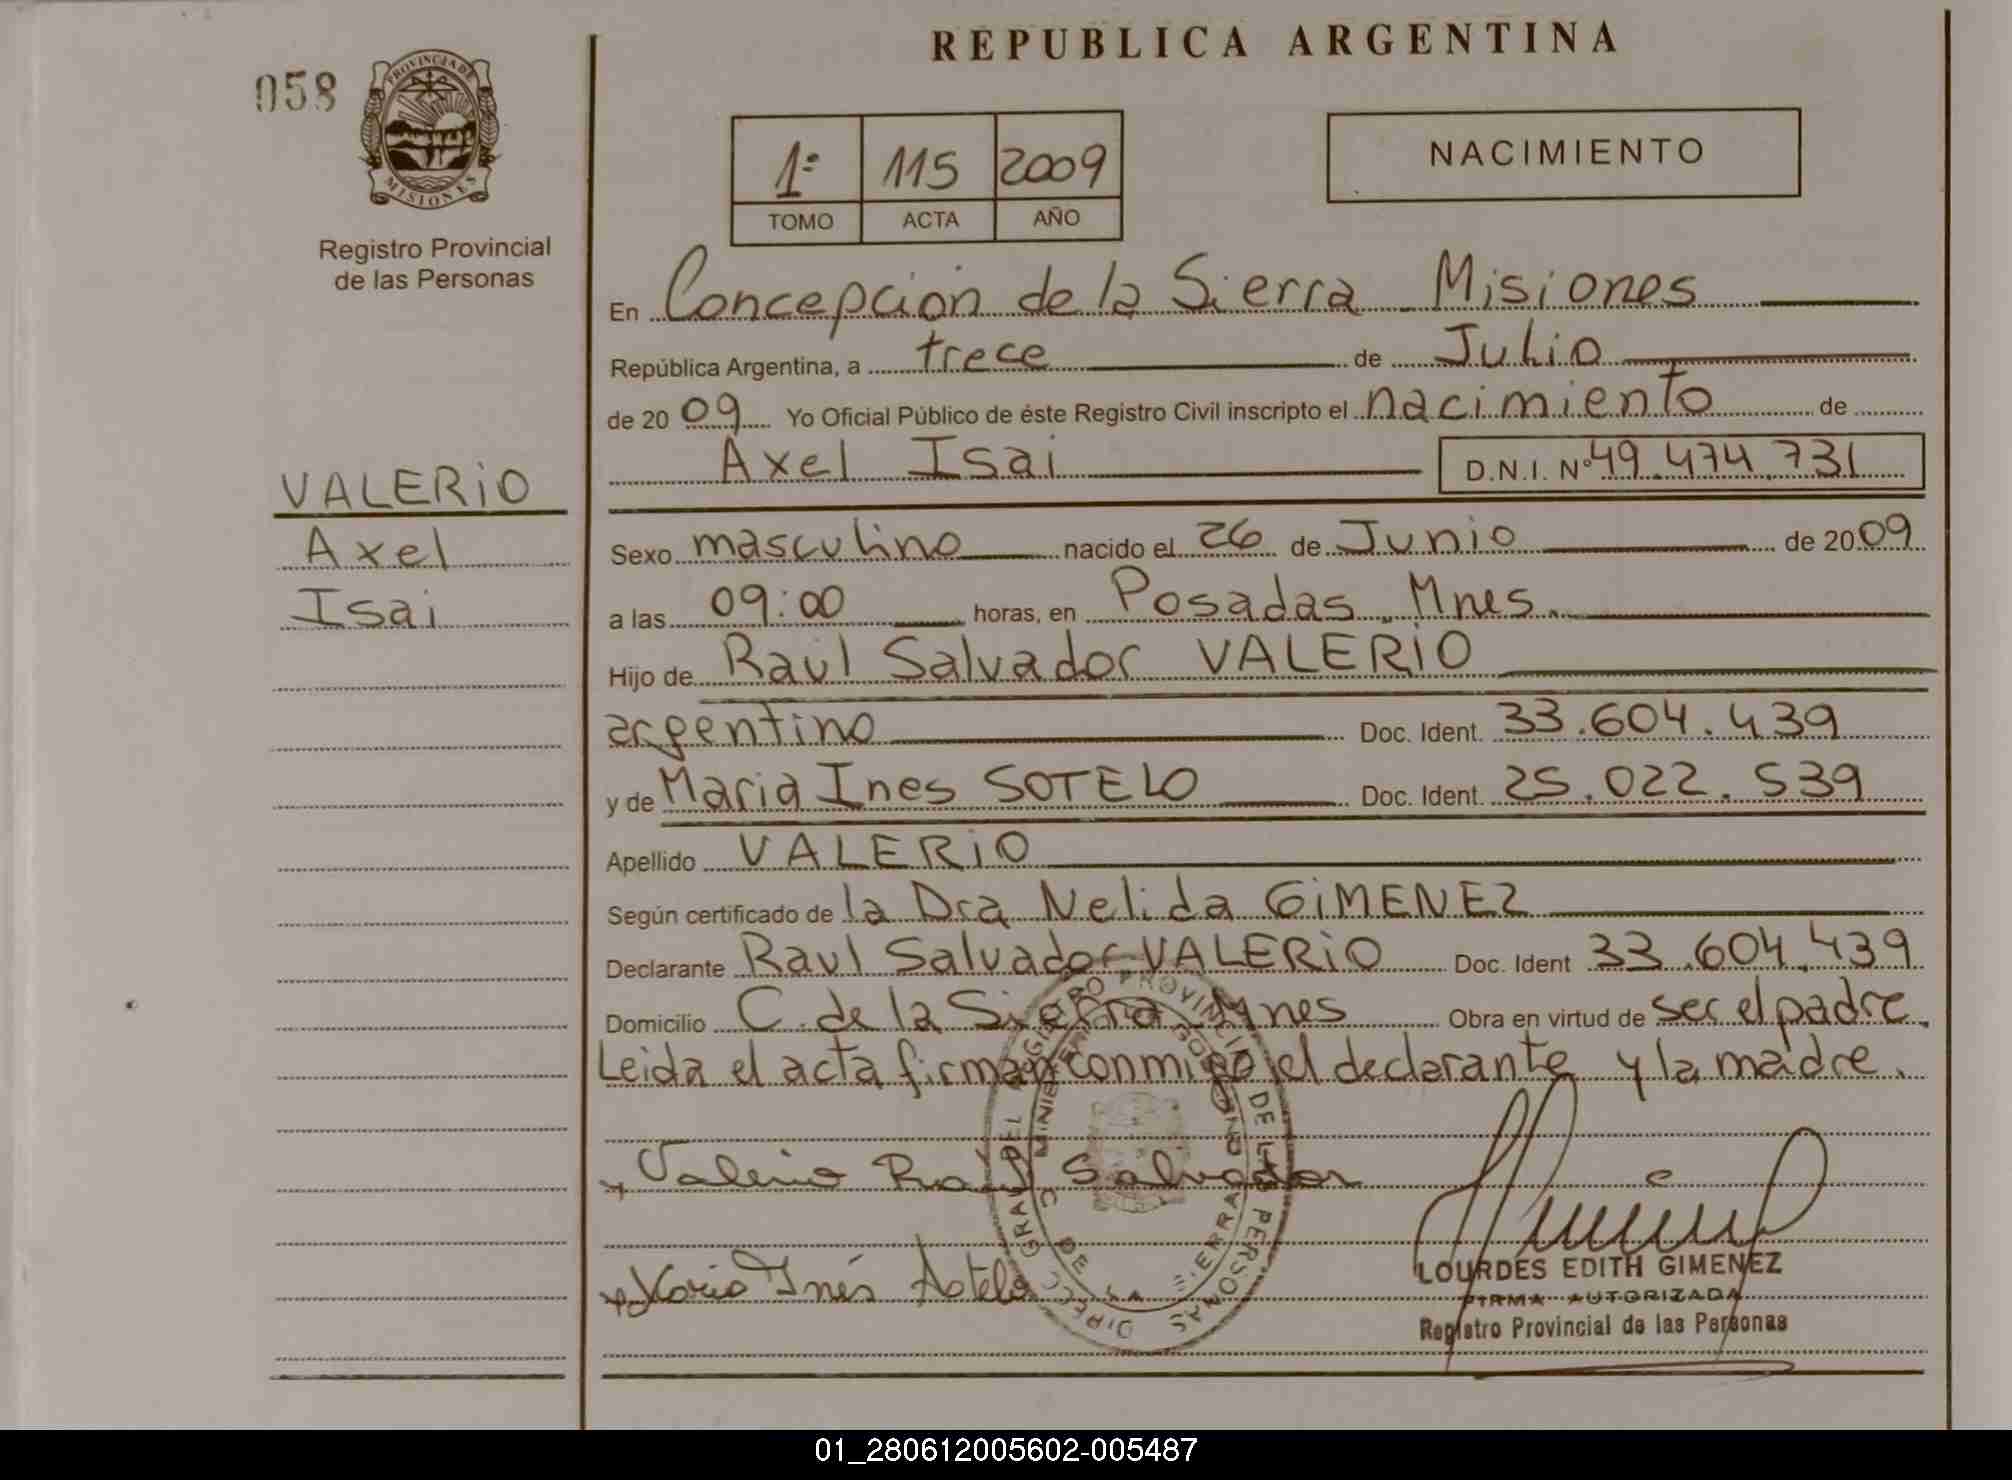 REPUBLICA ARGENTINA
058
PROVINCIA DE
MISIONES
Registro Provincial
de las Personas
1º 115 2009
TOMO ACTA AÑO
NACIMIENTO
En Concepción de la Sierra Misiones
República Argentina, a trece de Julio
de 2009 Yo Oficial Público de éste Registro Civil inscripto el nacimiento de
Axel Isai D.N.I. Nº 49.474.731
VALERiO
Axel
Isai
Sexo masculino nacido el 26 de Junio de 2009
a las 09:00 horas, en Posadas Mnes.
Hijo de Raul Salvador VALERiO
argentino Doc. Ident. 33.604.439
y de Maria Ines SOTELO Doc. Ident. 25.022.539
Apellido VALERiO
Según certificado de la Dra Nelida GiMENEZ
Declarante Raul Salvador VALERiO Doc. Ident 33.604.439
Domicilio C. de la Sierra Mnes Obra en virtud de ser el padre.
Leida el acta firman conmigo el declarante y la madre.
Valerio Raul Salvador
Maria Inés Sotelo
LOURDES EDITH GIMENEZ
FIRMA AUTORIZADA
Registro Provincial de las Personas
01_280612005602-005487